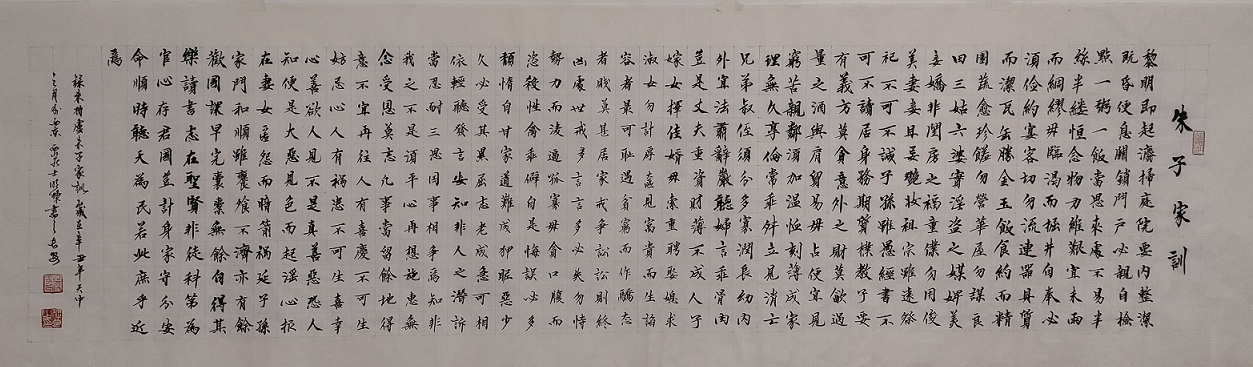 朱子家訓
黎明即起灑掃庭院要內整潔
既昏便息關鎖門戶必親自檢
點一粥一飯當思來處不易半
絲半縷恒念物力維艱宜未雨
而綢繆毋臨渴而掘井自奉必
須儉約宴客切勿流連器具質
而潔瓦缶勝金玉飯食約而精
園蔬愈珍饈勿營華屋勿謀良
田三姑六婆實淫盜之媒婢美
妾嬌非閨房之福童僕勿用俊
美妻妾且忌艷妝祖宗雖遠祭
祀不可不誠子孫雖愚經書不
可不讀居身務期質樸教子要
有義方莫貪意外之財莫飲過
量之酒與肩貿易毋占便宜見
窮苦親鄰須加溫恤刻薄成家
理無久享倫常乖舛立見消亡
兄弟叔侄須分多寡潤長幼內
外宜法肅辭嚴聽婦言乖骨肉
豈是丈夫重資財薄不成人子
嫁女擇佳婿毋索重聘娶媳求
淑女勿計厚奩見富貴而生諂
容者最可恥遇貧窮而作驕態
者賤莫甚居家戒爭訟訟則終
凶處世戒多言言多必失勿恃
勢力而凌逼孤寡毋貪口腹而
恣殺牲禽乖僻自是悔誤必多
頹惰自甘家道難成狎昵惡少
久必受其累屈志老成急可相
依輕聽發言安知非人之譖訴
當忍耐三思因事相爭焉知非
我之不是須平心再想施惠無
念受恩莫忘凡事當留餘地得
意不宜再往人有喜慶不可生
妬忌心人有禍患不可生喜幸
心善欲人見不是真善惡恐人
知便是大惡見色而起淫心報
在妻女匿怨而暗箭禍延子孫
家門和順雖饔飧不濟亦有餘
歡國課早完囊橐無餘自得其
樂讀書志在聖賢非徒科第為
官心存君國豈計身家守分安
命順時聽天為民若此庶乎近
焉
錄朱柏廬朱子家訓 歲在辛丑年天中
之月